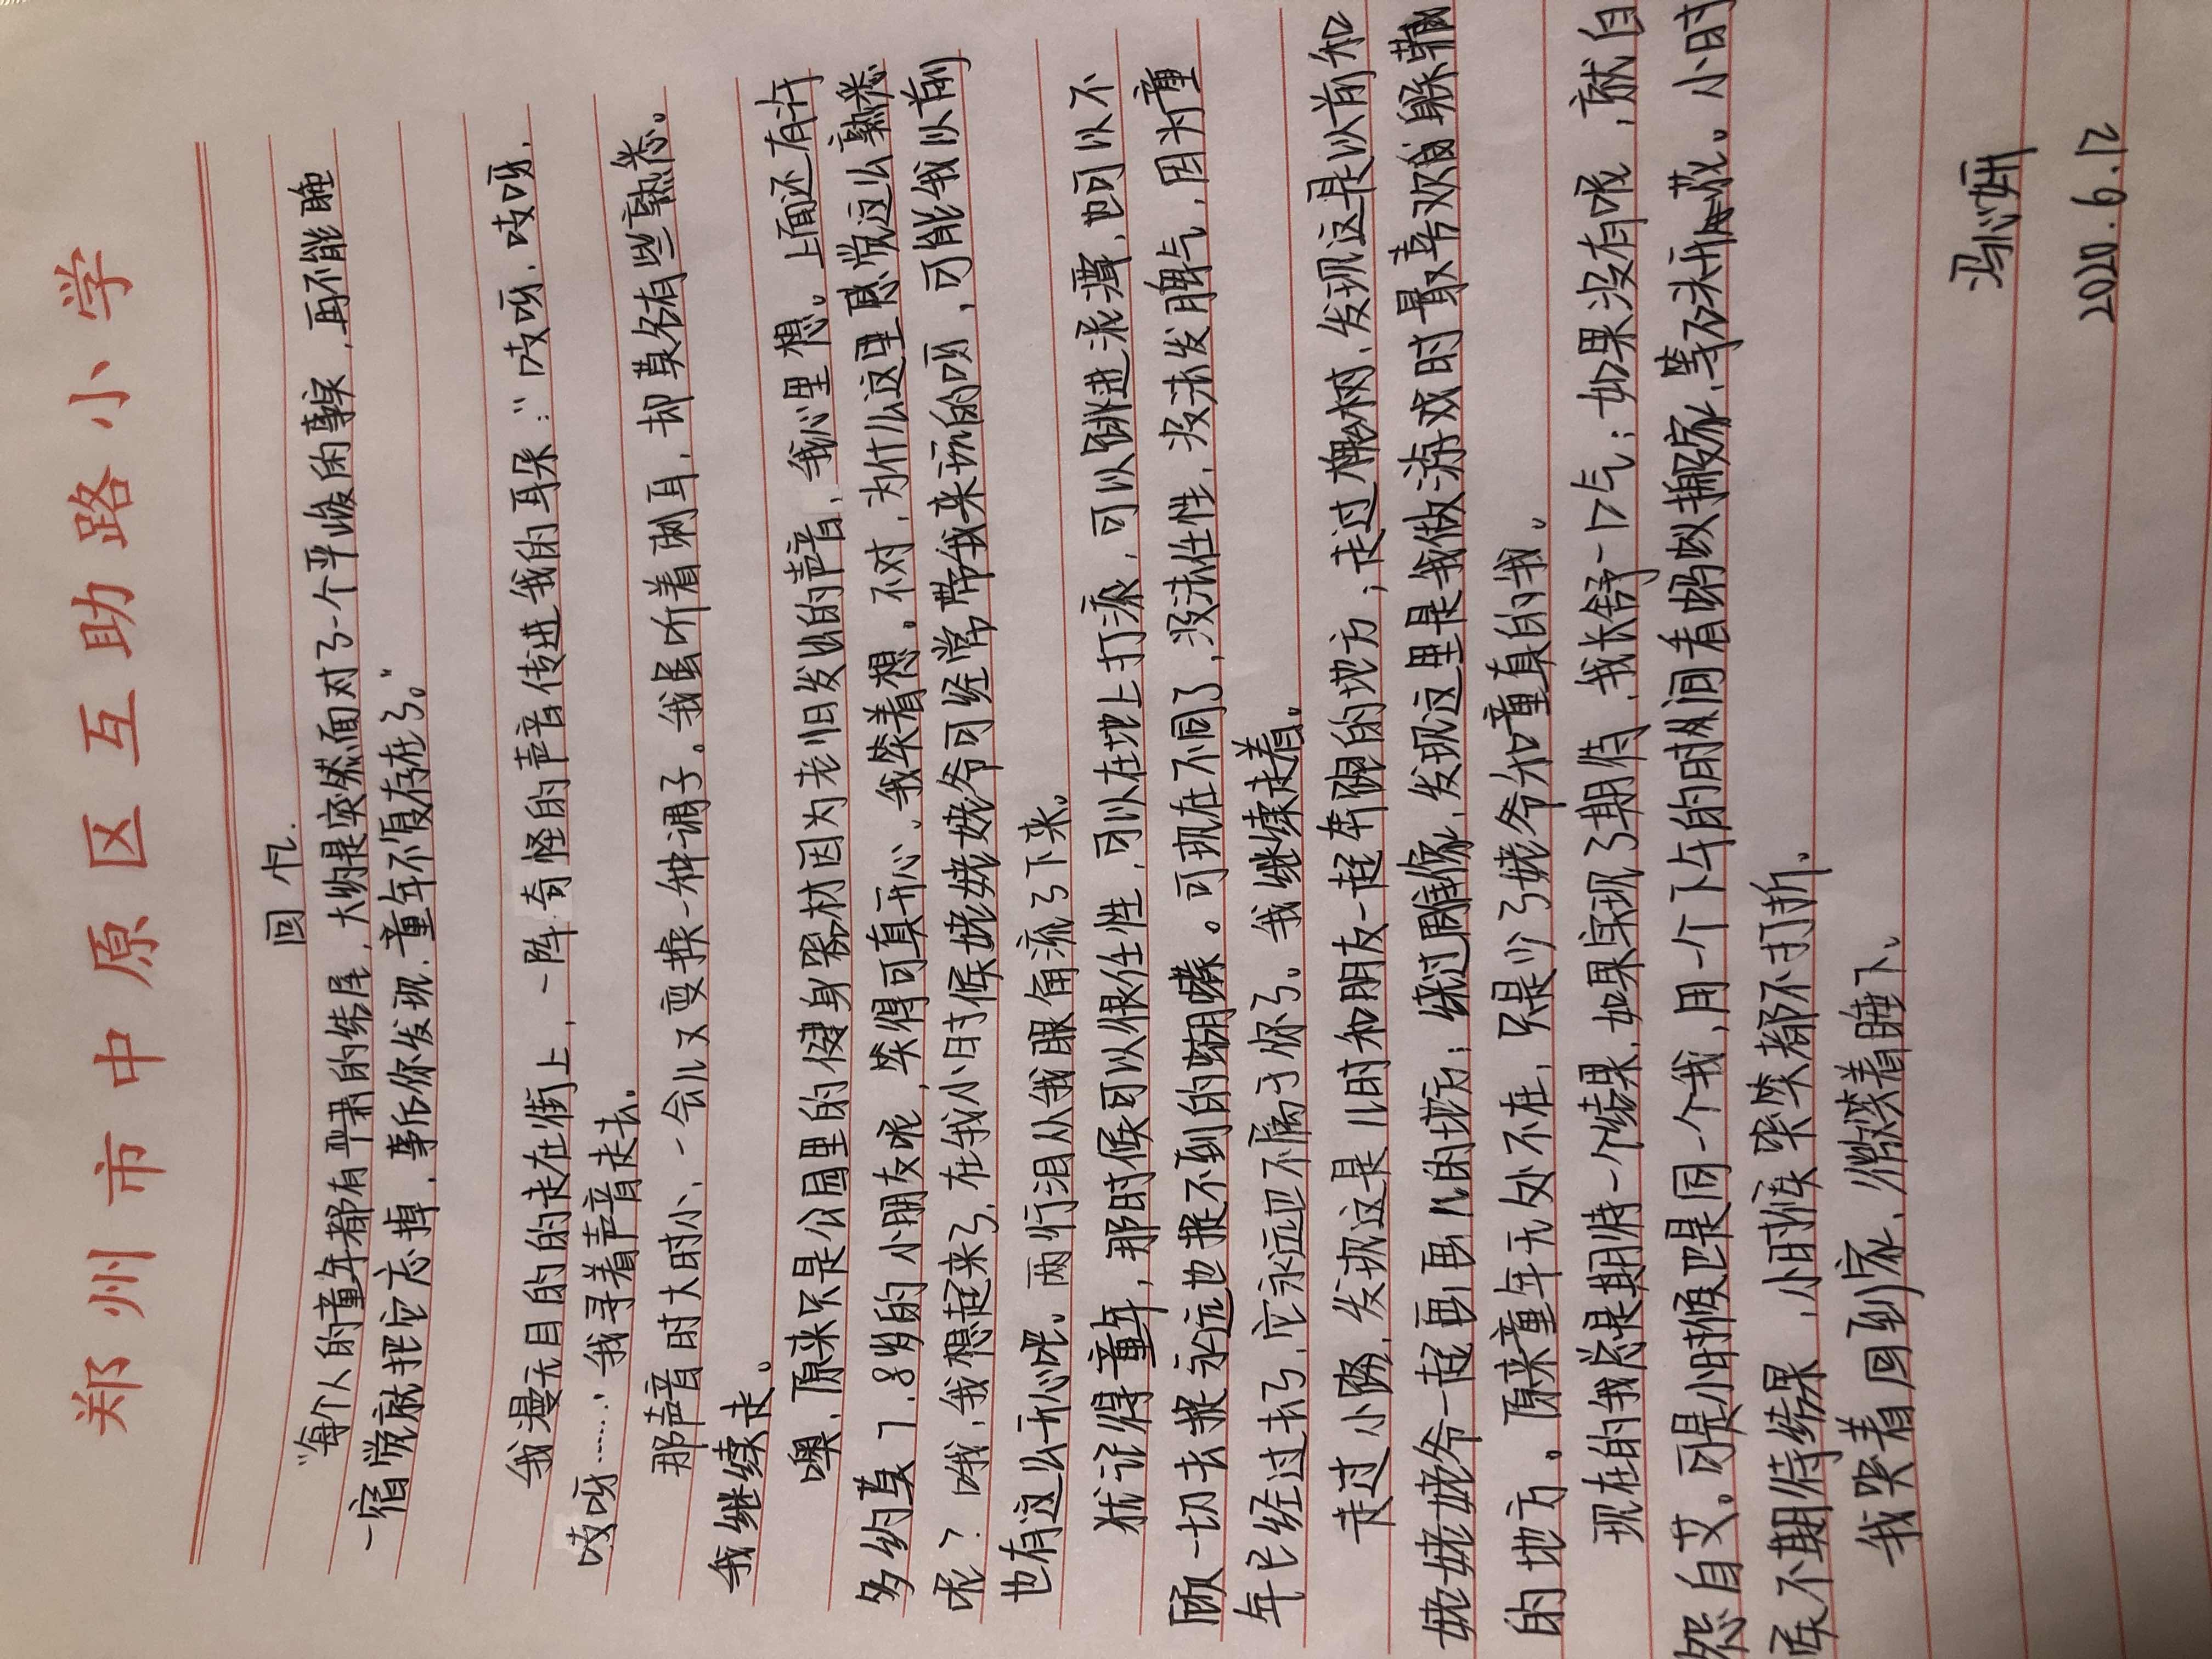 郑州市中原区互助路小学
回忆.
“每个人的童年都有严肃的结尾,大约是突然面对了一个严峻的事实,再不能睡
一宿觉就把它忘掉,事后你发现,童年不复存在了。”
我漫无目的的走在街上,一阵奇怪的声音传进我的耳朵:“吱呀、吱呀、
吱呀……”我寻着声音走去。
那声音时大时小、一会儿又变换一种调子。我虽听着刺耳、却莫名有些熟悉。
我继续走。
噢,原来只是公园里的健身器材因为老旧发出的声音,我心里想。上面还有许
多约莫7.8岁的小朋友呢,笑得可真开心。我笑着想。不对,为什么这里感觉这么熟悉
呢?哦,我想起来了,在我小时候姥姥姥爷可经常带我来玩的呀,可能我以前
也有这么开心吧。两行泪从我眼角流了下来。
犹记得童年,那时候可以很任性,可以在地上打滚,可以跳进泥潭,也可以不
顾一切去捉永远也捉不到的蝴蝶。可现在不同了,没法任性,没法发脾气,因为童
年已经过去了,它永远也不属于你了。我继续走着。
走过小路,发现这是儿时和朋友一起奔跑的地方;走过槐树,发现这是以前和
姥姥姥爷一起画画儿的地方;绕过雕像,发现这里是我做游戏时最喜欢躲藏
的地方。原来童年无处不在,只是少了姥爷和童真的我。
现在的我总是期待一个结果,如果实现了期待,我长舒一口气;如果没有呢,就自
怨自艾。可是小时候也是同一个我,用一个下午的时间看蚂蚁搬家、等石头开花。小时
候不期待结果,小时候哭笑都不打折。
我哭着回到家、微笑着睡下、
冯心妍
2020.6.12